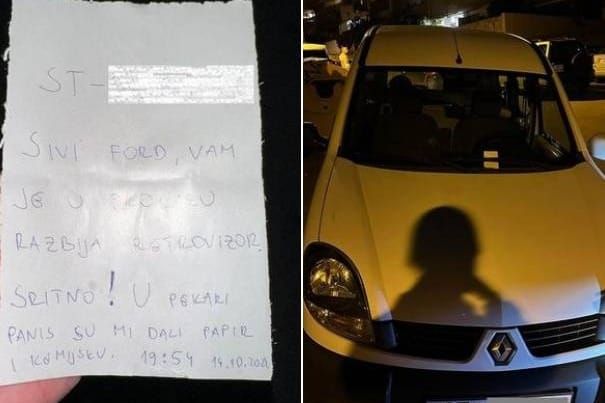 ST-
SIVI FORD, VAM
JE U
RAZBIJA RETROVIZOR.
SRITNO! U PEKARI
PANIS SU MI DALI PAPIR
I KEMIJSKU. 19:54 14.10.2021